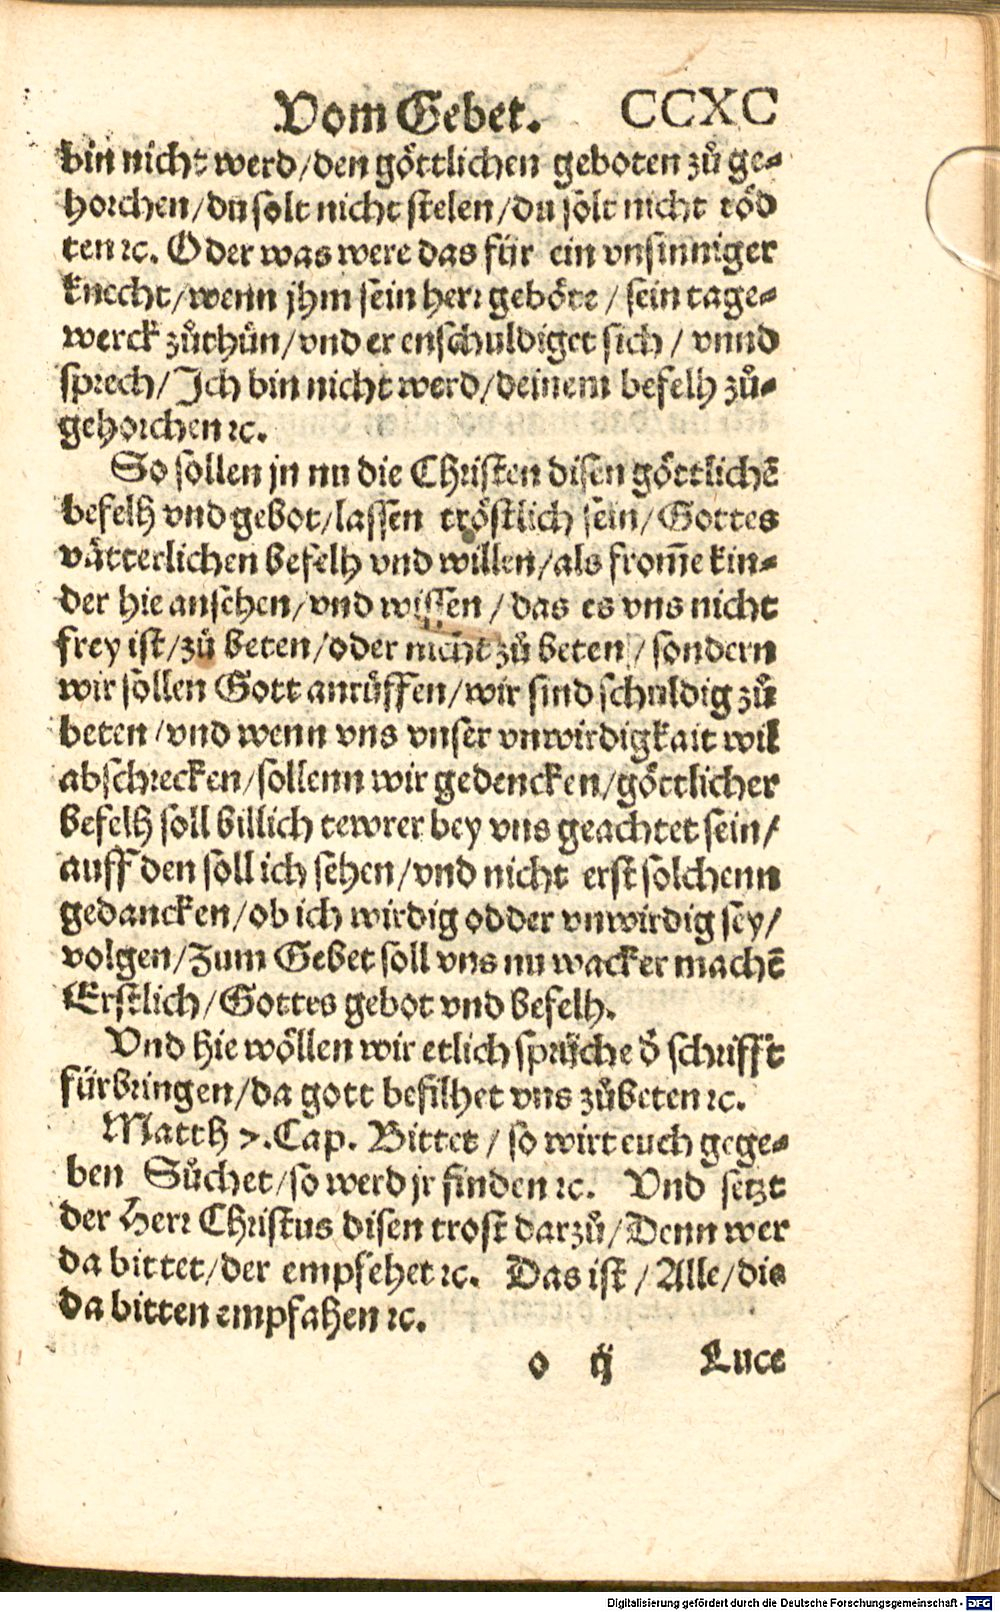 Vom Gebet. CCXC
bin nicht werd/den göttlichen geboten zů ge-
horchen/du solt nicht stelen/du solt nicht töd
ten ꝛc. Oder was were das für ein vnsinniger
knecht/wenn jhm sein herr geböte/sein tage-
werck zůthůn/vnd er enschuldiget sich/vnnd
sprech/Ich bin nicht werd/deinem befelh zů-
gehorchen ꝛc.
So sollen jn nu die Christen disen göttlichẽ
befelh vnd gebot/lassen tröstlich sein/Gottes
vätterlichen befelh vnd willen/als from̃e kin-
der hie ansehen/vnd wissen/das es vns nicht
frey ist/zů beten/oder nicht zů beten/sondern
wir sollen Gott anrüffen/wir sind schuldig zů
beten/vnd wenn vns vnser vnwirdigkait wil
abschrecken/sollenn wir gedencken/göttlicher
befelh soll billich tewrer bey vns geachtet sein/
auff den soll ich sehen/vnd nicht erst solchenn
gedancken/ob ich wirdig odder vnwirdig sey/
volgen/Zum Gebet soll vns nu wacker machẽ
Erstlich/Gottes gebot vnd befelh.
Vnd hie wöllen wir etlich sprüche d̕ schrifft
fürbringen/da gott befilhet vns zůbeten ꝛc.
Matth 7.Cap. Bittet/so wirt euch gege-
ben Sůchet/so werd jr finden ꝛc. Vnd setzt
der Herr Christus disen trost darzů/Denn wer
da bittet/der empfehet ꝛc. Das ist/Alle/die
da bitten empfahen ꝛc.
o ij Luce
Digitalisierung gefördert durch die Deutsche Forschungsgemeinschaft - DFG